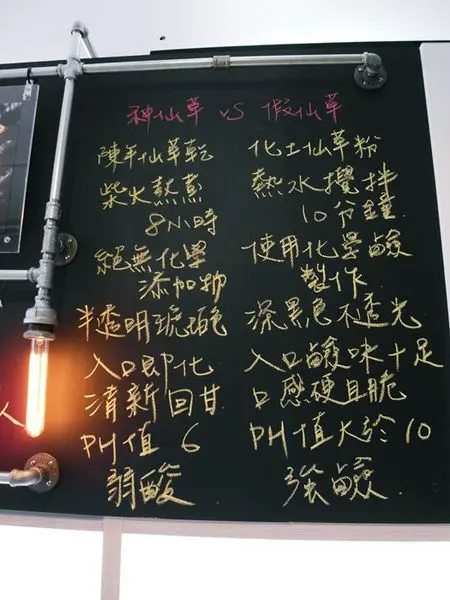 神仙草 VS 假仙草
陳年仙草乾
柴火熬煮
8小時
絕無化學
添加物
半透明琥珀色
入口即化
清新回甘
PH值 6
弱酸
化工仙草粉
熱水攪拌
10分鐘
使用化學鹼
製作
深黑色不透光
入口鹼味十足
口感硬且脆
PH值大於10
強鹼
人